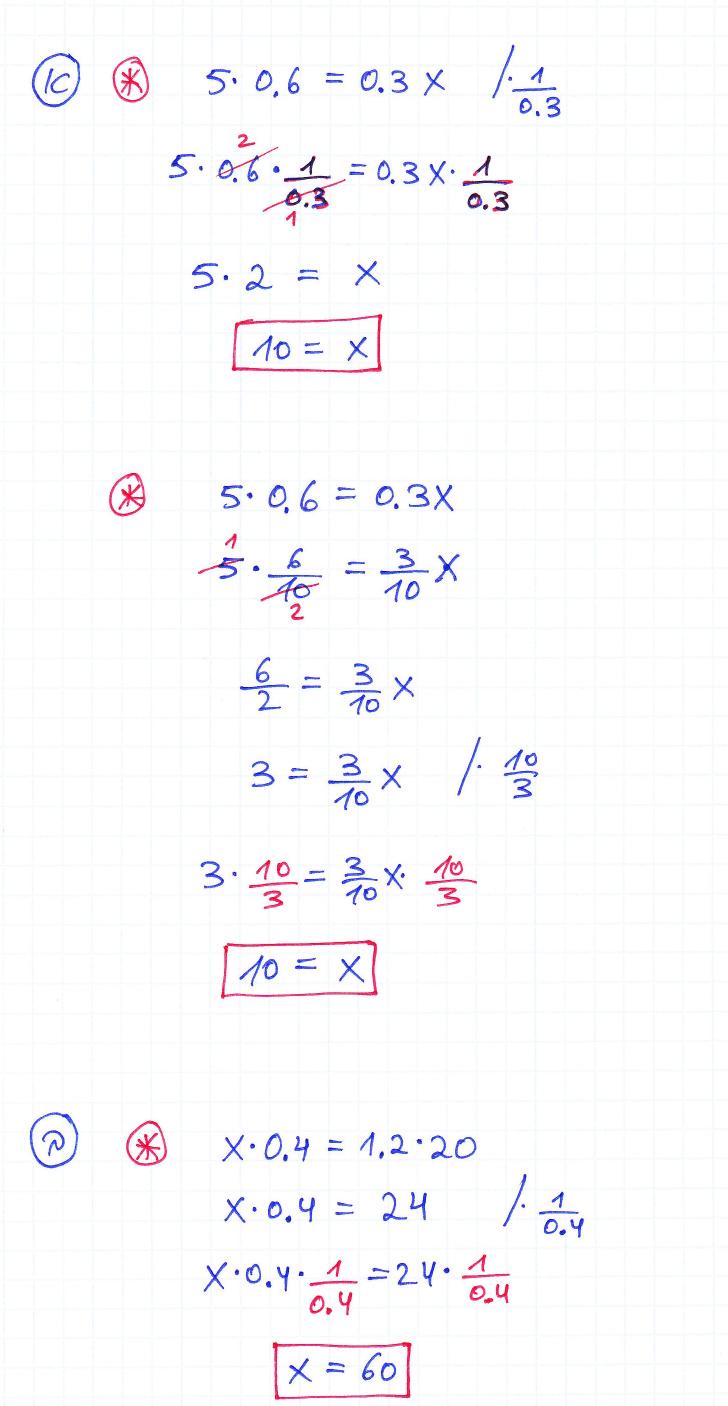 1c * 5 · 0.6 = 0.3 x / · 1/0.3
5 · 0.6 2 · 1/0.3 1 = 0.3 x · 1/0.3
5 · 2 = x
10 = x
* 5 · 0.6 = 0.3x
5 1 · 6/10 2 = 3/10 x
6/2 = 3/10 x
3 = 3/10 x / · 10/3
3 · 10/3 = 3/10 x · 10/3
10 = x
* x · 0.4 = 1.2 · 20
x · 0.4 = 24 / · 1/0.4
x · 0.4 · 1/0.4 = 24 · 1/0.4
x = 60